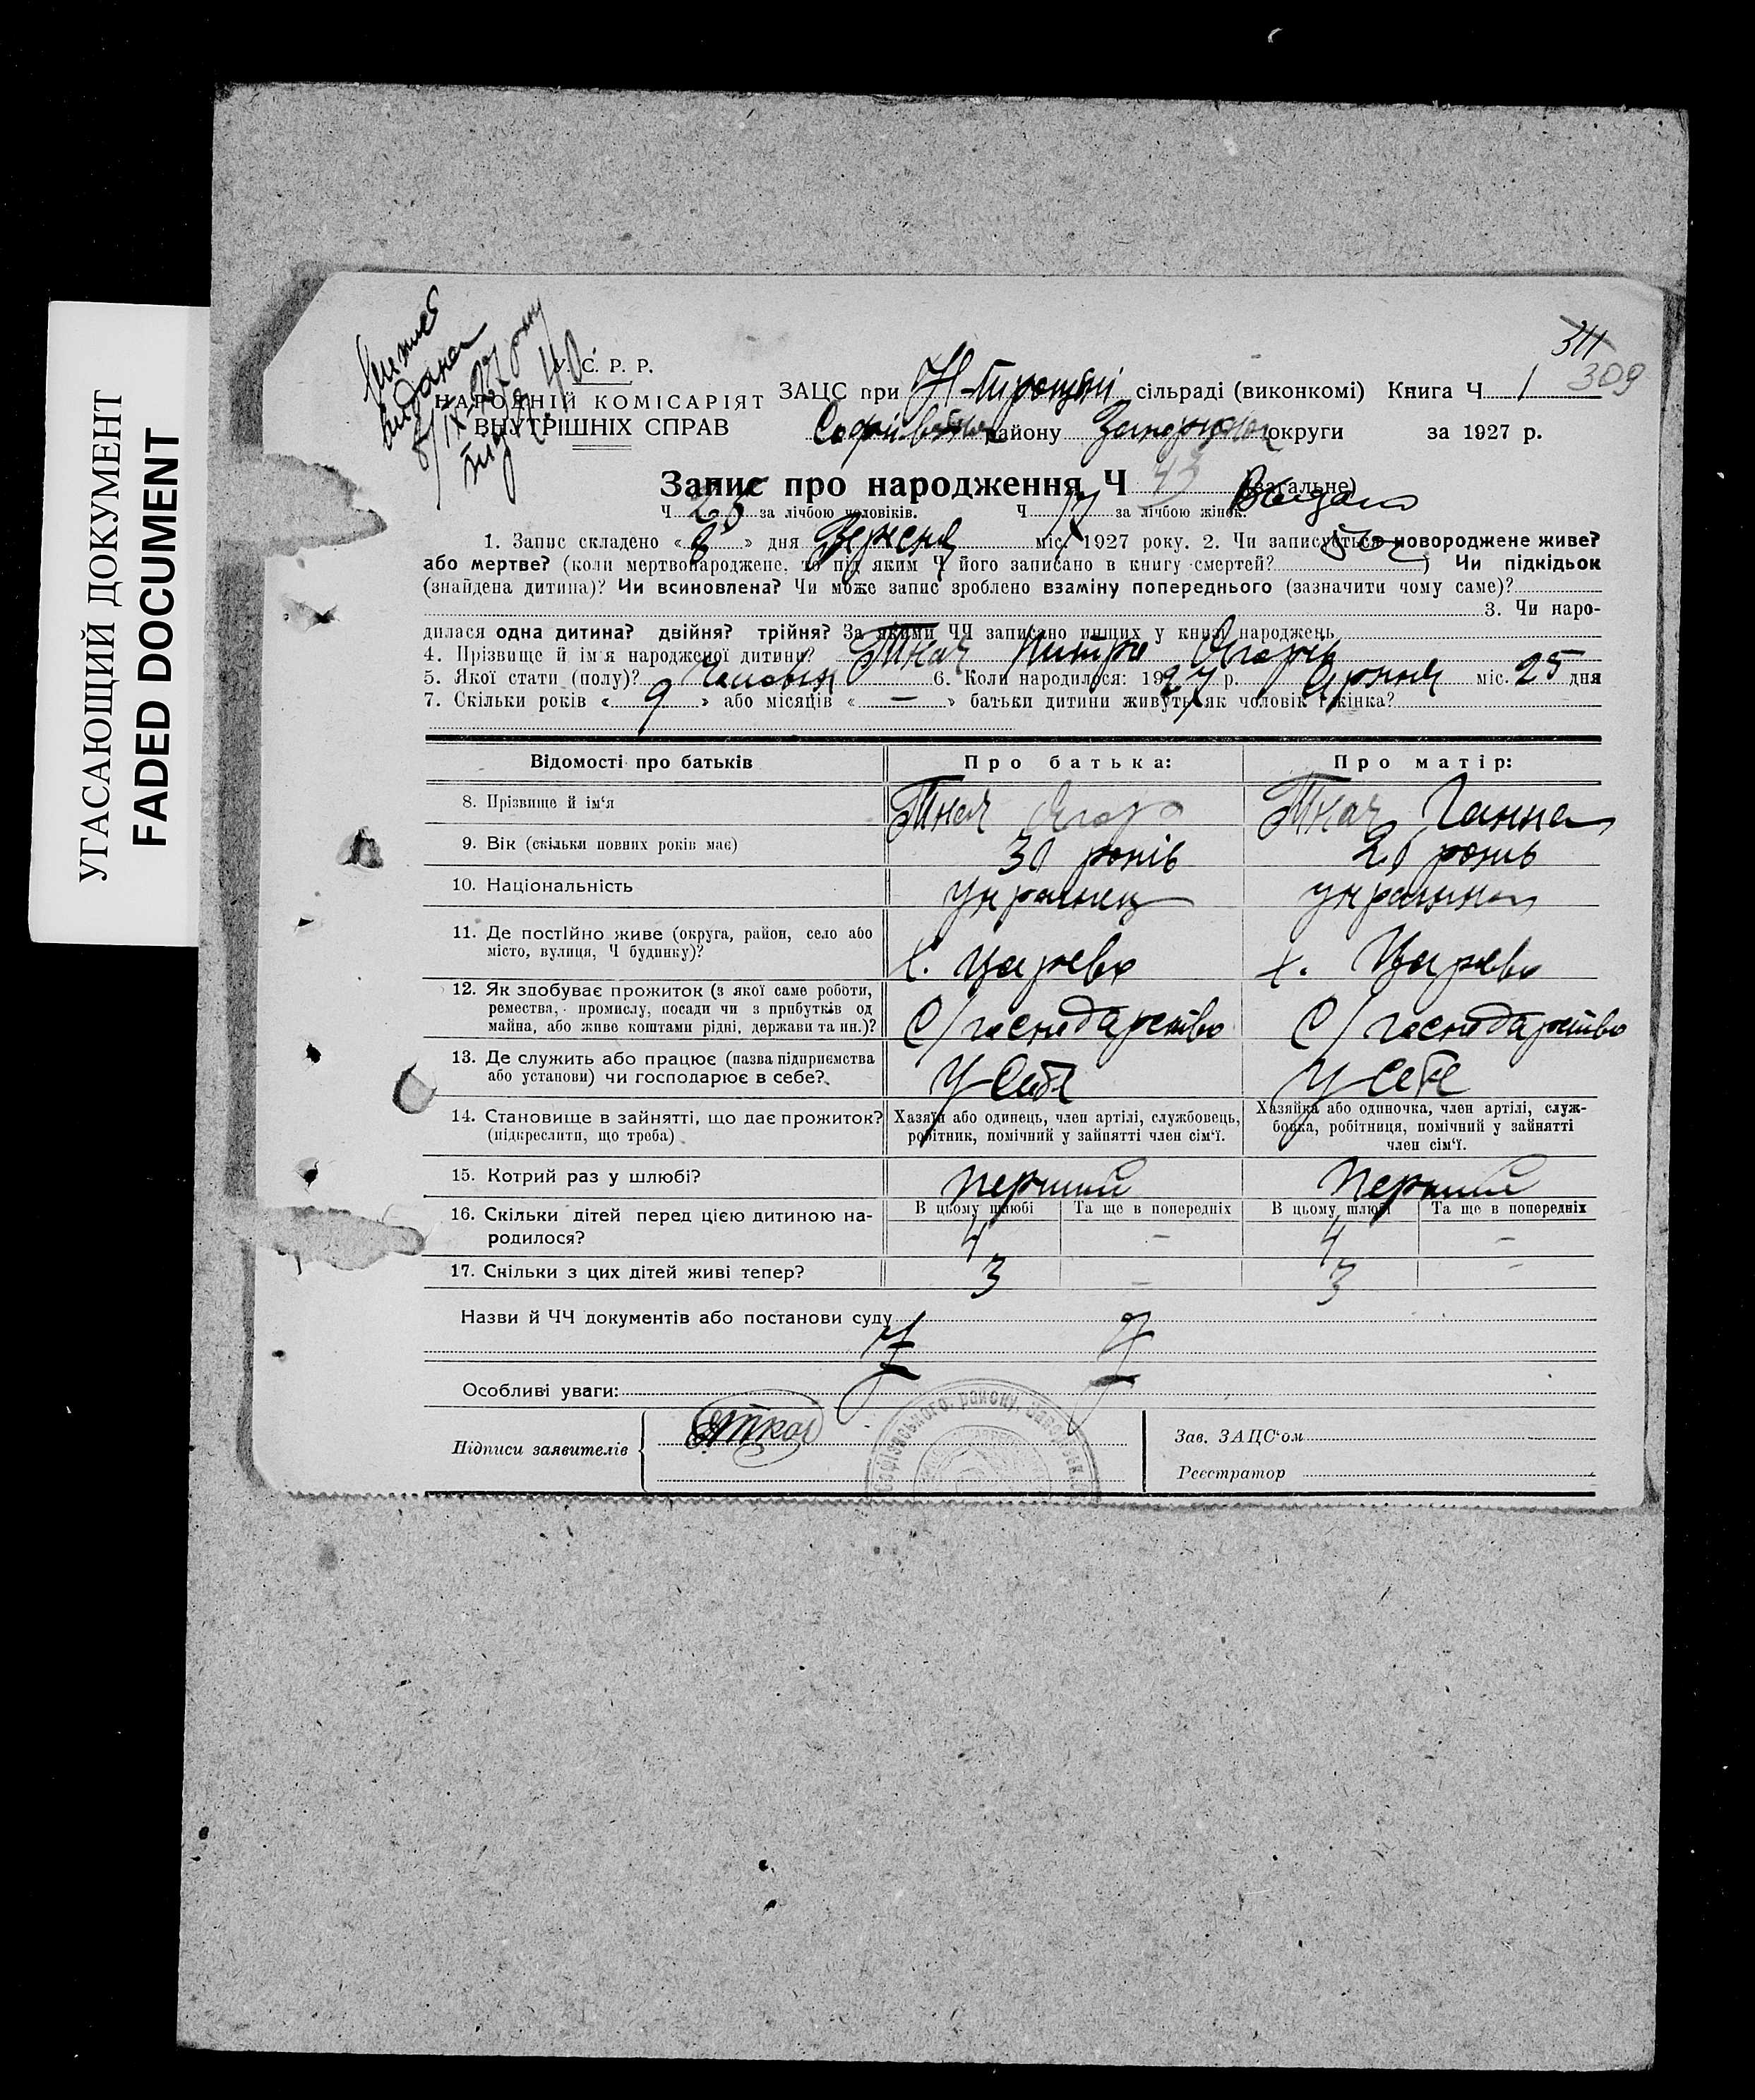 УГАСАЮЩИЙ ДОКУМЕНТ
FADED DOCUMENT
311
309
видана
8/IX-27 року
С. Р. Р.
НАРОДНІЙ КОМІСАРІЯТ
ВНУТРІШНІХ СПРАВ
ЗАЦС при сільраді (виконкомі) Книга Ч 1
Софіївськ району Запоріжжя округи за 1927 р.
Запис про народження Ч 43 (загальне)
Ч 26 за лічбою чоловіків. Ч 17 за лічбою жінок.
1. Запис складено « 8 » дня Вересня міс. 1927 року. 2. Чи записується новороджене живе?
або мертве? (коли мертвонароджене, то під яким Ч його записано в книгу смертей? ) Чи підкідьок
(знайдена дитина)? Чи всиновлена? Чи може запис зроблено взаміну попереднього (зазначити чому саме)?
3. Чи наро-
дилася одна дитина? двійня? трійня? За якими ЧЧ записано инших у книзі народжень
4. Прізвище й ім'я народженої дитини? Ткач
5. Якої стати (полу)? 6. Коли народилося: 1927 р. міс. 25 дня
7. Скільки років « 9 » або місяців « — » батьки дитини живуть як чоловік і жінка?
Відомості про батьків Про батька: Про матір:
8. Прізвище й ім'я Ткач Ткач Ганна
9. Вік (скільки повних років має) років
10. Національність украинец украинка
11. Де постійно живе (округа, район, село або
місто, вулиця, Ч будинку)? х. Царево х. Царево
12. Як здобуває прожиток (з якої саме роботи,
ремества, промислу, посади чи з прибутків од
майна, або живе коштами рідні, держави та ин.)? С/господарство С/господарство
13. Де служить або працює (назва підприємства
або установи) чи господарює в себе? У себе У себе
14. Становище в зайнятті, що дає прожиток?
(підкреслити, що треба)
Хазяїн або одинець, член артілі, службовець,
робітник, помічний у зайнятті член сім'ї.
Хазяйка або одиночка, член артілі, служ-
бовка, робітниця, помічний у зайнятті
член сім'ї.
15. Котрий раз у шлюбі? перший перший
В цьому шлюбі Та ще в попередніх В цьому шлюбі Та ще в попередніх
16. Скільки дітей перед цією дитиною на-
родилося? 4 — 4 —
17. Скільки з цих дітей живі тепер? 3 — 3 —
Назви й ЧЧ документів або постанови суду
Особливі уваги:
Підписи заявителів
Зав. ЗАЦС'ом
Реєстратор